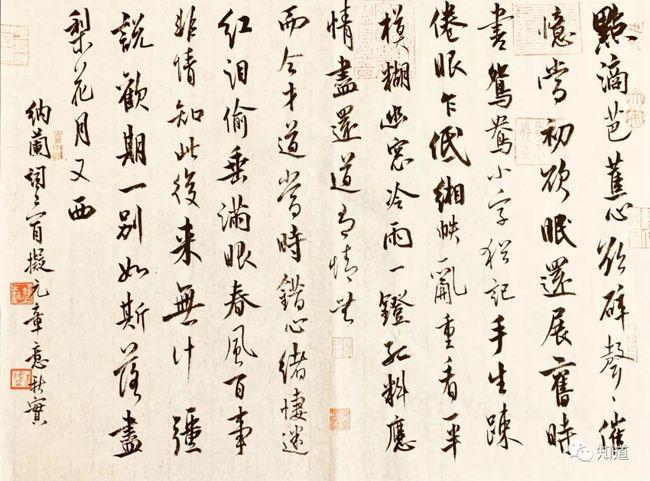 點滴芭蕉心欲碎聲〻催
憶當初欲眠還展舊時
書鴛鴦小字猶記手生疎
倦眼乍低緗帙亂重看一半
模糊幽窓冷雨一鐙孤料應
情盡還道有情無
而今才道當時錯心緒悽迷
紅泪偷垂滿眼春風百事
非情知此後来無計彊
說歡期一别如斯落盡
梨花月又西
納蘭詞二首擬元章意秋實
知道